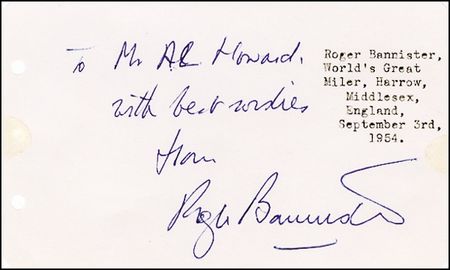 To Mr A.E. Howard.
with best wishes
from
Roger Bannister
Roger Bannister,
World's Great
Miler, Harrow,
Middlesex,
England,
September 3rd,
1954.